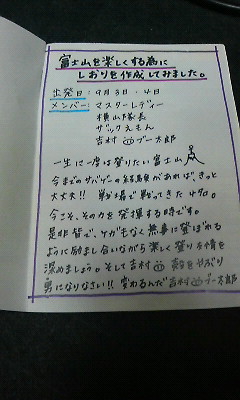 富士山を楽しくする為に
しおりを作成してみました。
出発日:9月3日・4日
メンバー:マスターレディー
横山隊長
ザックえもん
吉村 ブー太郎
一生に一度は登りたい富士山
今までのサバゲーの経験があれば、きっと
大丈夫!! 戦場で戦ってきた4名。
今こそ、その力を発揮する時です。
是非皆で、ケガもなく無事に登ぼれる
ように励まし合いながら楽しく登り友情を
深めましょう。そして吉村 殻をやぶり
男になりなさい!! 変わるんだ吉村 ブー太郎